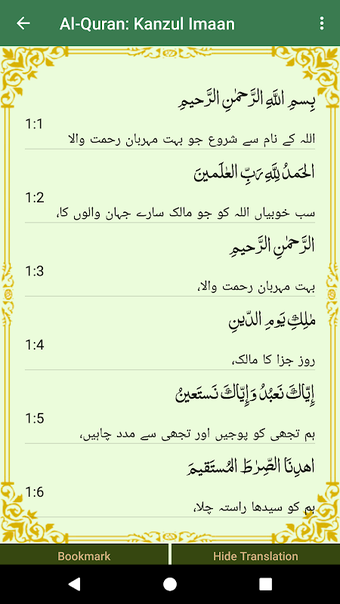 Al-Quran: Kanzul Imaan
بِسمِ اللَّهِ الرَّحمٰنِ الرَّحيمِ
1:1
اللہ کے نام سے شروع جو بہت مہربان رحمت والا
الحَمدُ لِلَّهِ رَبِّ العٰلَمينَ
1:2
سب خوبیاں اللہ کو جو مالک سارے جہان والوں کا،
الرَّحمٰنِ الرَّحيمِ
1:3
بہت مہربان رحمت والا،
مٰلِكِ يَومِ الدّينِ
1:4
روز جزا کا مالک،
إِيّاكَ نَعبُدُ وَإِيّاكَ نَستَعينُ
1:5
ہم تجھی کو پوجیں اور تجھی سے مدد چاہیں،
اهدِنَا الصِّرٰطَ المُستَقيمَ
1:6
ہم کو سیدھا راستہ چلا،
Bookmark
Hide Translation